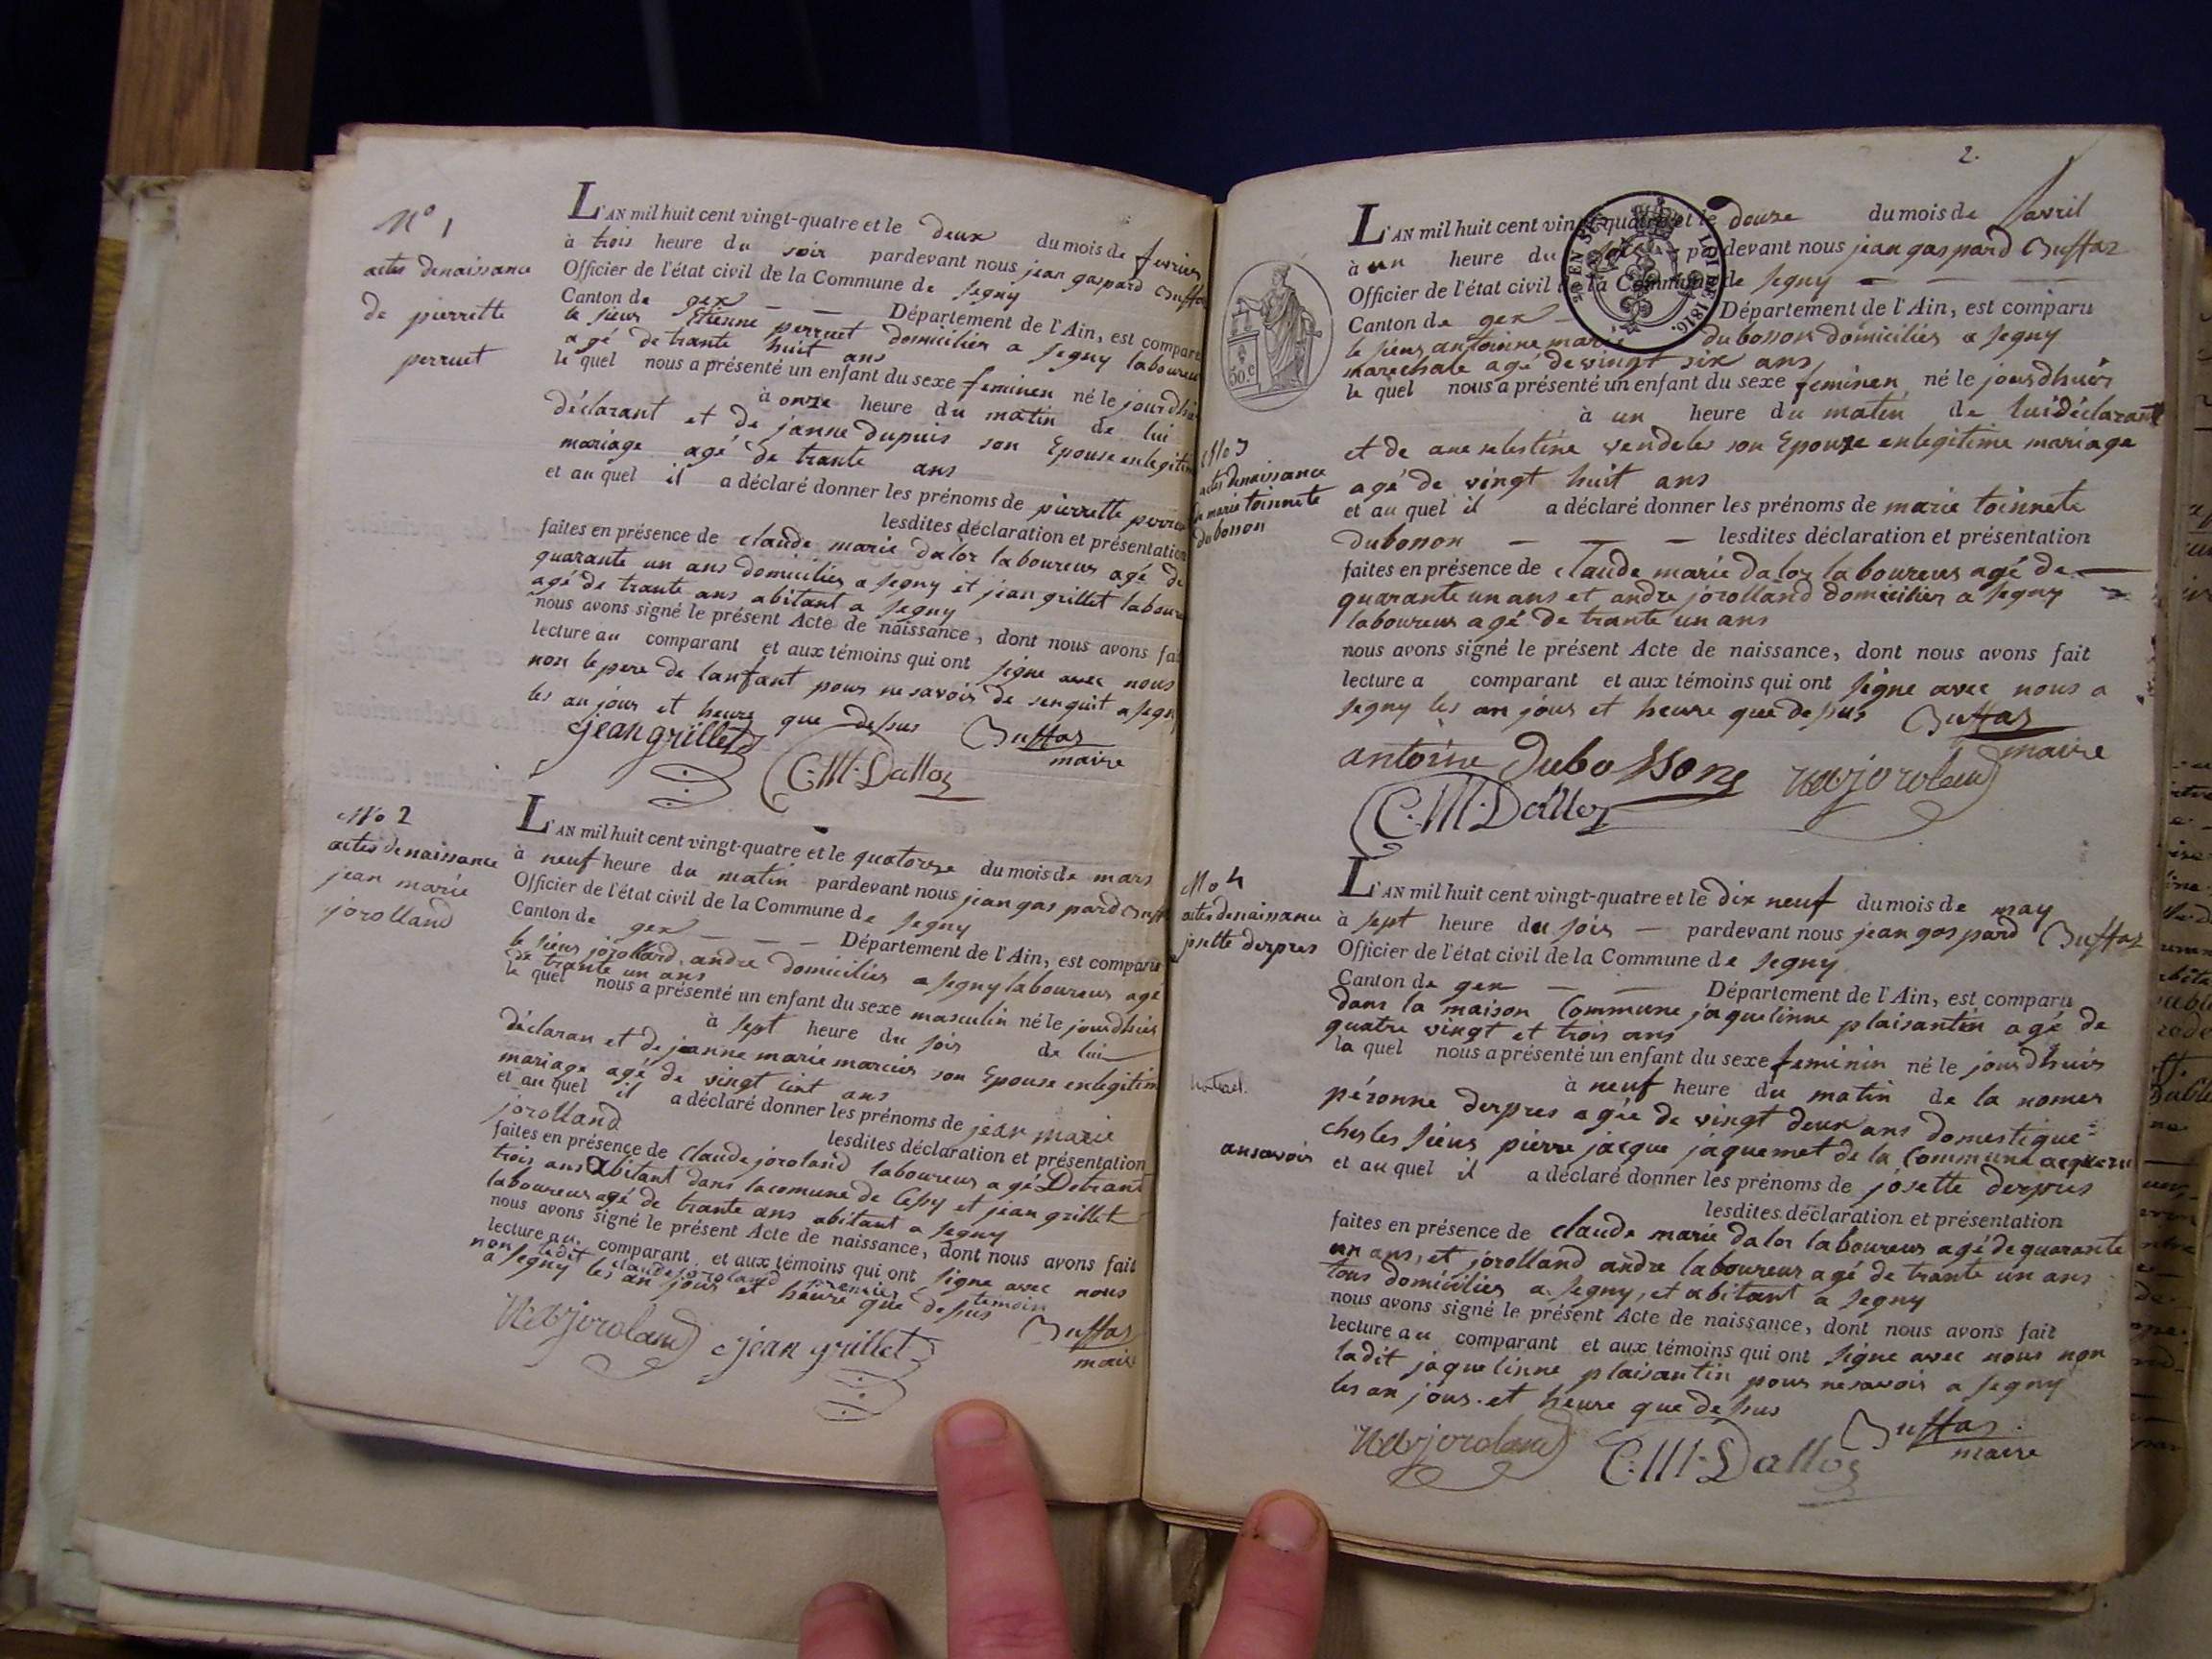 N° 1
actes denaissance
de pierrette
perruet
L'AN mil huit cent vingt-quatre et le deux du mois de fevrier
à trois heure du soir pardevant nous jean gaspard Buffaz
Officier de l'état civil de la Commune de segny
Canton de gex — — Département de l'Ain, est comparu
le sieur Etienne perruet domicilier a segny laboureur
agé de trante huit ans
le quel nous a présenté un enfant du sexe feminen né le jourdhui
à onze heure du matin de lui
déclarant et de janne dupuis son Epouse enlegitim
mariage agé de trante ans
et au quel il a déclaré donner les prénoms de pierrette perruet
lesdites déclaration et présentation
faites en présence de claude marie daloz laboureur agé de
quarante un ans domicilier a segny et jean grillet laboure
agé de trante ans abitant a segny
nous avons signé le présent Acte de naissance, dont nous avons fait
lecture au comparant et aux témoins qui ont signe avec nous
non le pere de lanfant pour ne savoir de senquit a segny
les an jour et heure que dessus Buffaz
maire
jean grillet
C. M. Dalloz
No 2
actes denaissance
jean marie
jorolland
L'AN mil huit cent vingt-quatre et le quatorze du mois de mars
à neuf heure du matin pardevant nous jean gaspard Buff
Officier de l'état civil de la Commune de segny
Canton de gex — — — Département de l'Ain, est comparu
le sieur jorolland andre domicilier a segny laboureur agé
de trante un ans
le quel nous a présenté un enfant du sexe masculin né le jourdhuir
à sept heure du soir de lui
déclaran et de jeanne marie marcier son Epouse enlegitim
mariage agé de vingt cint ans
et au quel il a déclaré donner les prénoms de jean marie
jorolland lesdites déclaration et présentation
faites en présence de claude joroland laboureur agé Detrant
trois ans abitant dans lacomune de Cessy et jean grillet
laboureur agé de trante ans abitant a segny
nous avons signé le présent Acte de naissance, dont nous avons fait
lecture au comparant et aux témoins qui ont signe avec nous
non ledit claude joroland premier temoin
a segny les an jour et heure que dessus Buffaz
maire
joroland jean grillet
2.
LOI DE 1816.
50.c
No 3
actes denaissance
de marie toinnete
dubosson
L'AN mil huit cent vingt-quatre et le douze du mois de avril
à un heure du pardevant nous jean gaspard Buffaz
Officier de l'état civil de la Commune de segny —
Canton de gex — Département de l'Ain, est comparu
le sieur antoinne marie dubosson domicilier a segny
marechale agé de vingt six ans
le quel nous a présenté un enfant du sexe feminen né le jourdhuir
à un heure du matin de lui déclarant
et de son Epouze enlegitime mariage
agé de vingt huit ans
et au quel il a déclaré donner les prénoms de marie toinnete
dubosson — — — lesdites déclaration et présentation
faites en présence de claude marie daloz laboureur agé de —
quarante un ans et andre jorolland domicilier a segny
laboureur agé de trante un ans
nous avons signé le présent Acte de naissance, dont nous avons fait
lecture a comparant et aux témoins qui ont signe avec nous a
segny les an jour et heure que dessus Buffaz
maire
antoine Dubossong joroland
C. M. Dalloz
No 4
actes denaissance
josette derpres
naturel.
L'AN mil huit cent vingt-quatre et le dix neuf du mois de may
à sept heure du soir — pardevant nous jean gaspard Buffaz
Officier de l'état civil de la Commune de segny
Canton de gex — — Département de l'Ain, est comparu
dans la maison Commune jaquelinne plaisantin agé de
quatre vingt et trois ans
la quel nous a présenté un enfant du sexe feminin né le jourdhuir
à neuf heure du matin de la nomer
péronne derpres agée de vingt deux ans domestique
ches les sieur pierre jacque jaquemet de la Commune
ansavoir et au quel il a déclaré donner les prénoms de josette derpres
lesdites déclaration et présentation
faites en présence de claude marie daloz laboureur agé de quarante
un ans, et jorolland andre laboureur agé de trante un ans
tous domicilier a segny, et abitant a segny
nous avons signé le présent Acte de naissance, dont nous avons fait
lecture au comparant et aux témoins qui ont signe avec nous non
ladit jaquelinne plaisantin pour ne savoir a segny
les an jour et heure que dessus
Buffaz
maire
joroland C. M. Dalloz